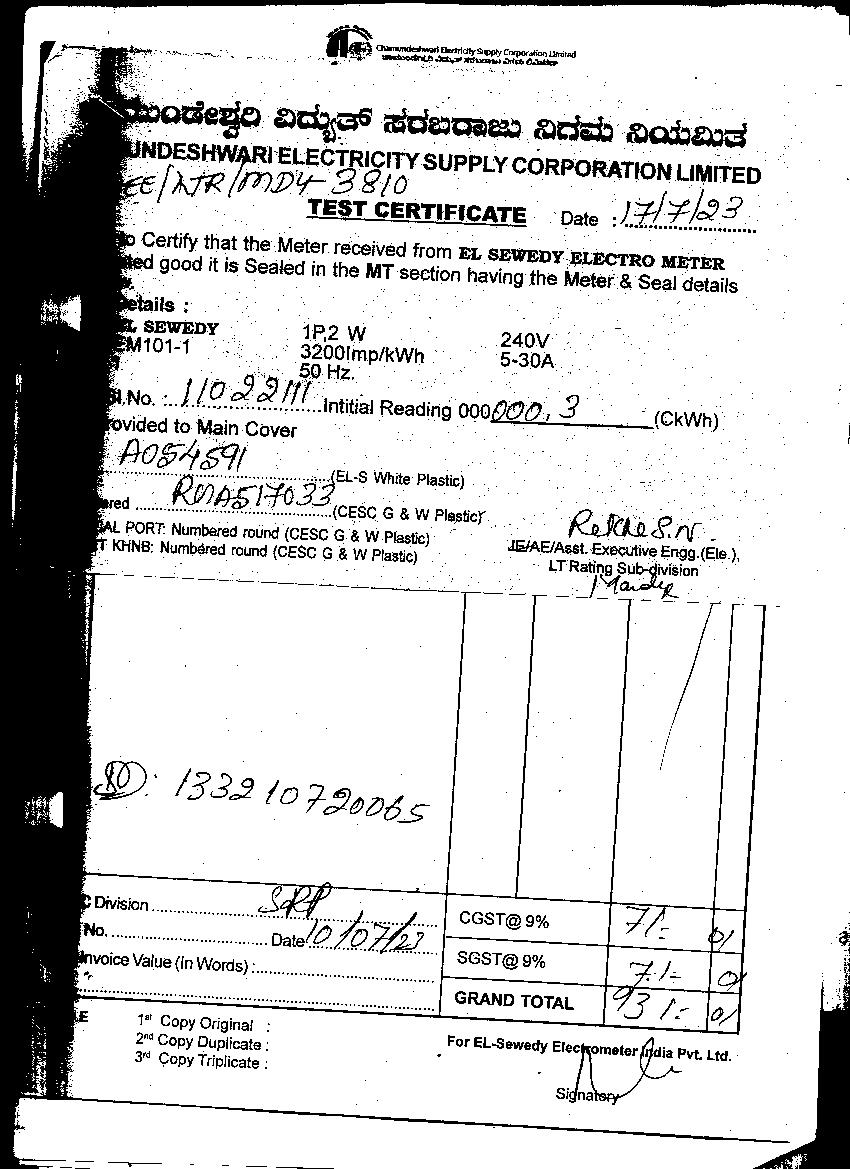 Chamundeshwari Electricity Supply Corporation Limited
ಮುಂಡೇಶ್ವರಿ ವಿದ್ಯುತ್ ಸರಬರಾಜು ನಿಗಮ ನಿಯಮಿತ
UNDESHWARI ELECTRICITY SUPPLY CORPORATION LIMITED
EE/ATR/MD4-3810
TEST CERTIFICATE Date : 17/7/23
to Certify that the Meter received from EL SEWEDY ELECTRO METER
ted good it is Sealed in the MT section having the Meter & Seal details
etails :
EL SEWEDY 1P,2 W 240V
EM101-1 3200Imp/kWh 5-30A
50 Hz.
Sl.No. : 11022111 Intitial Reading 000 000,3 (CkWh)
rovided to Main Cover
A054591 (EL-S White Plastic)
ered (CESC G & W Plastic)
AL PORT: Numbered round (CESC G & W Plastic)
T KHNB: Numbered round (CESC G & W Plastic)
Rekha S.N
JE/AE/Asst. Executive Engg.(Ele.),
LT Rating Sub-division
133210720065
C Division SRP CGST@ 9% 7/-
No. Date 10/07/23 SGST@ 9% 7/-
Invoice Value (In Words) : GRAND TOTAL 93/-
E 1st Copy Original :
2nd Copy Duplicate :
3rd Copy Triplicate :
For EL-Sewedy Electrometer India Pvt. Ltd.
Signatory